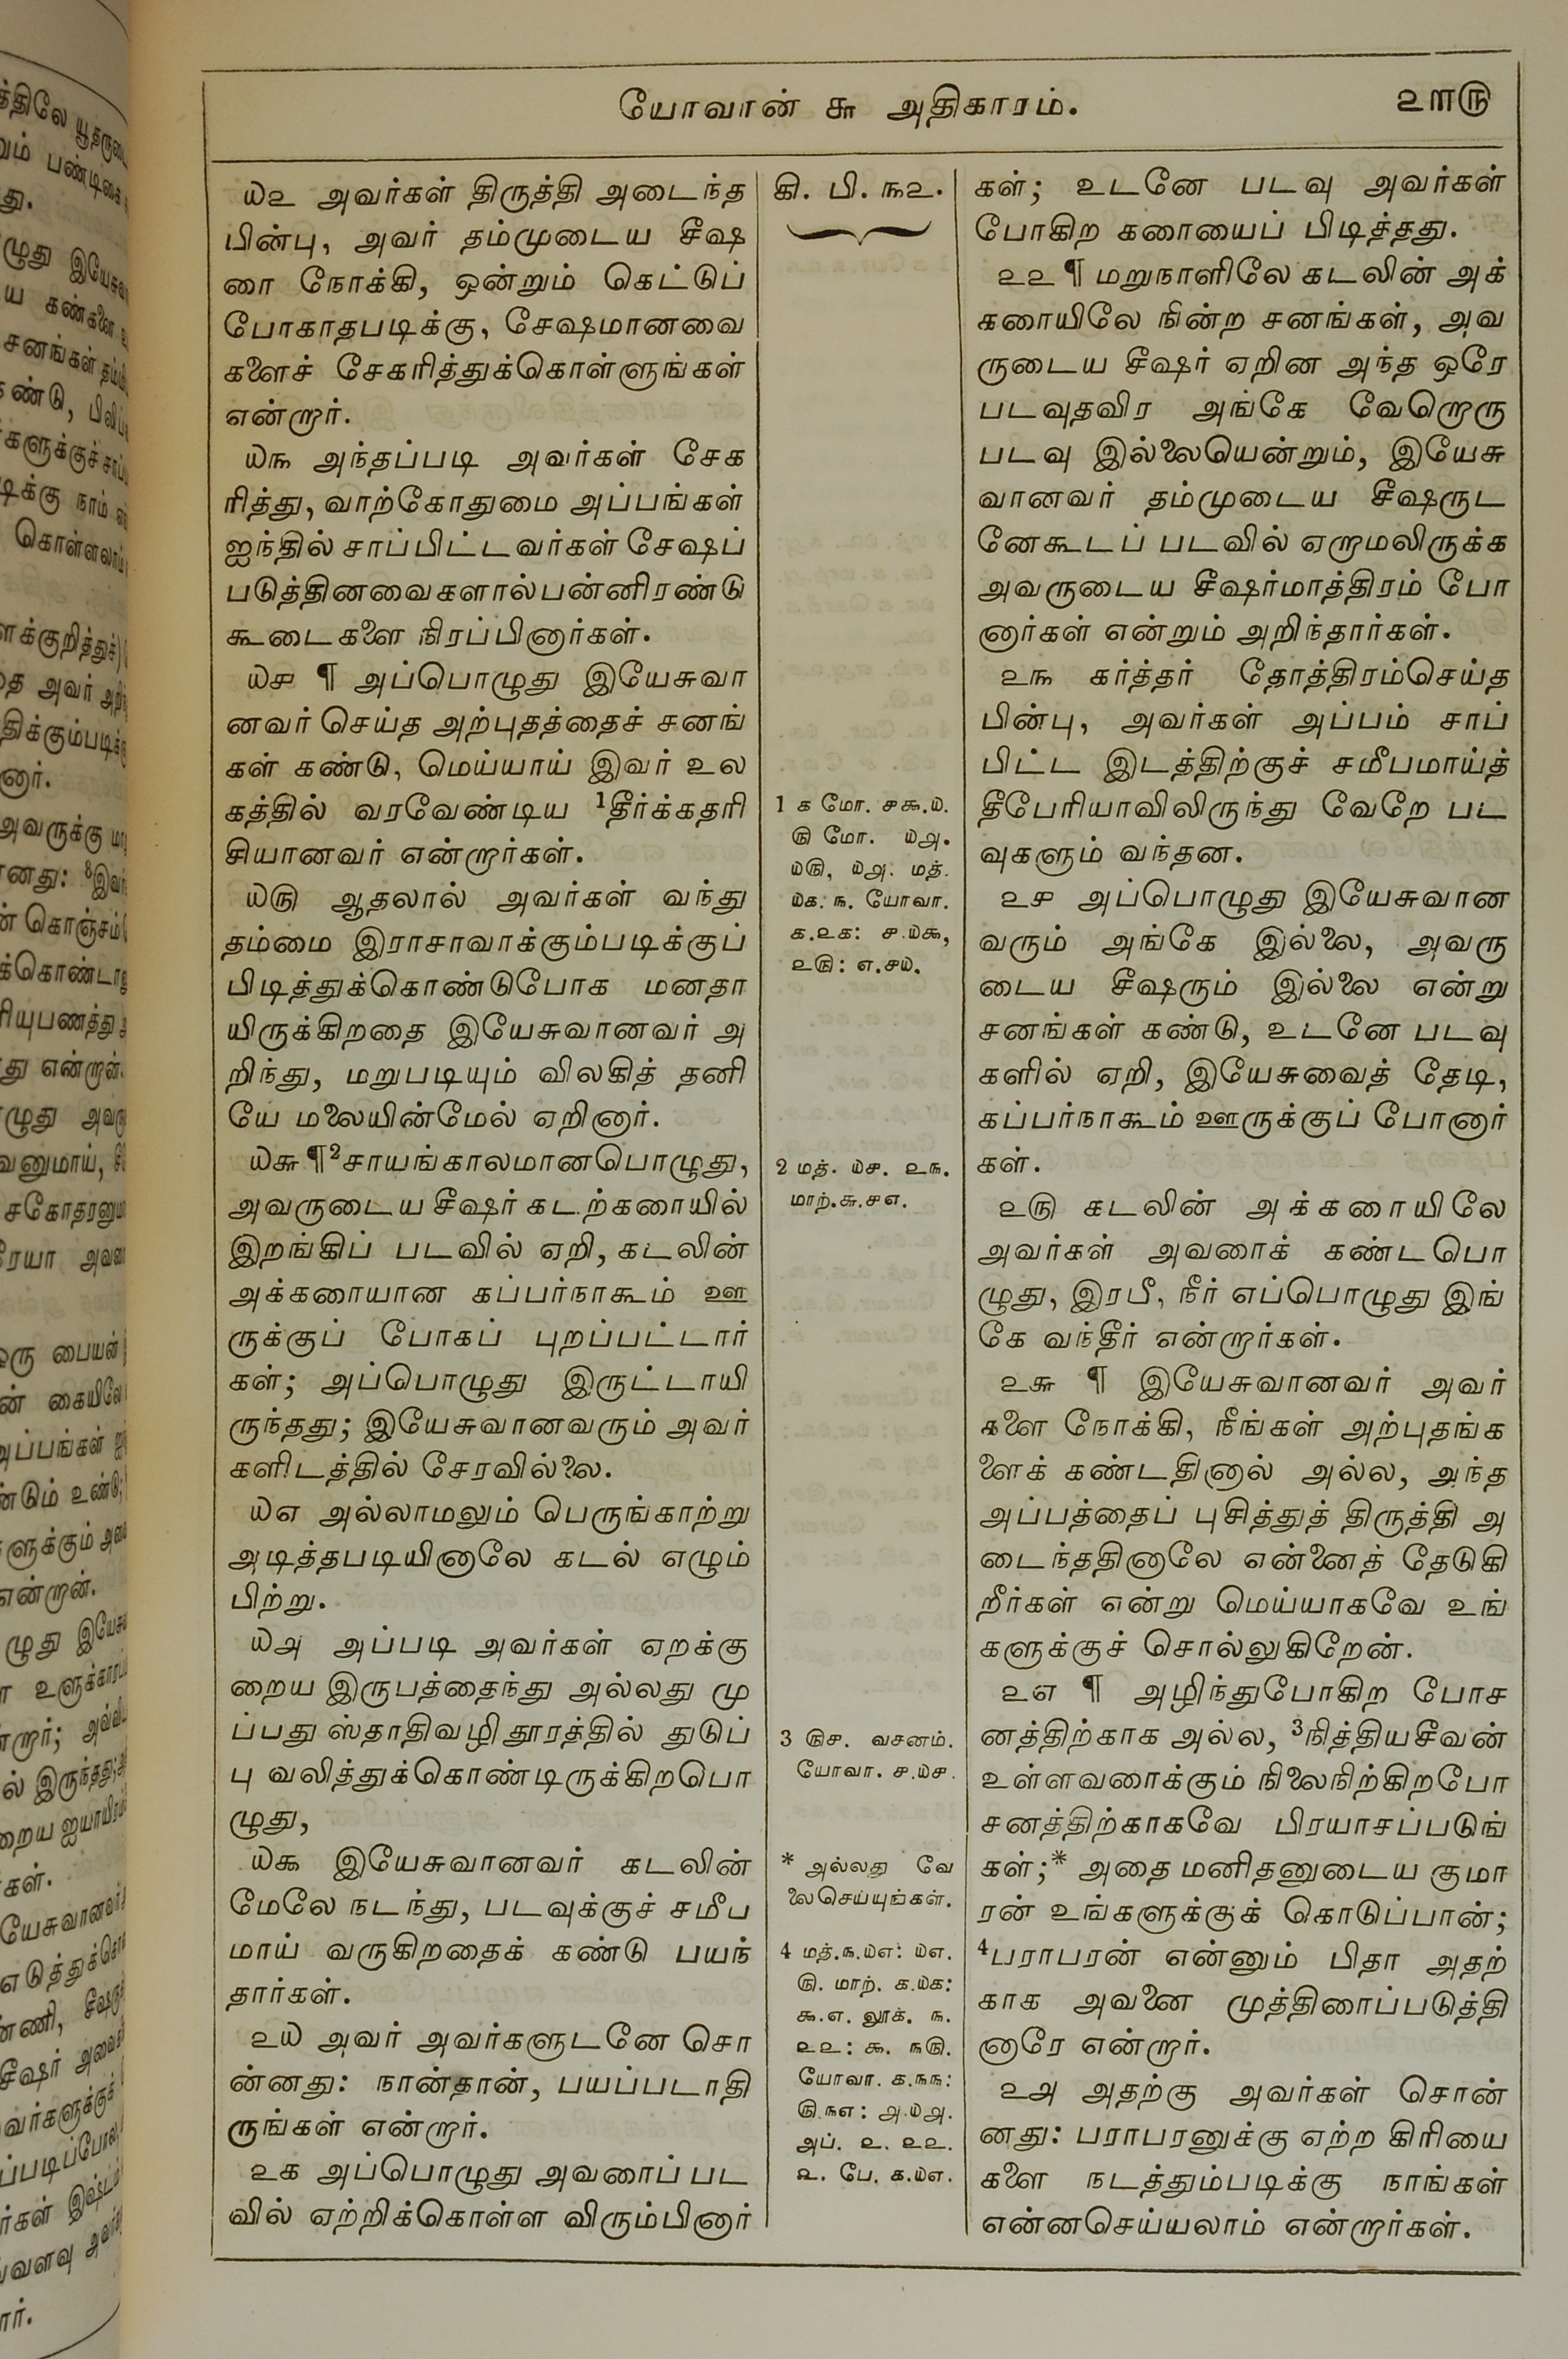 யோவான் ௬ அதிகாரம்.
௨௱௫
௰௨ அவர்கள் திருத்தி அடைந்த
பின்பு, அவர் தம்முடைய சீஷ
ரை நோக்கி, ஒன்றும் கெட்டுப்
போகாதபடிக்கு, சேஷமானவை
களைச் சேகரித்துக்கொள்ளுங்கள்
என்றார்.
௰௩ அந்தப்படி அவர்கள் சேக
ரித்து, வாற்கோதுமை அப்பங்கள்
ஐந்தில் சாப்பிட்டவர்கள் சேஷப்
படுத்தினவைகளால்பன்னிரண்டு
கூடைகளை நிரப்பினார்கள்.
௰௪ ¶ அப்பொழுது இயேசுவா
னவர் செய்த அற்புதத்தைச் சனங்
கள் கண்டு, மெய்யாய் இவர் உல
கத்தில் வரவேண்டிய ¹தீர்க்கதரி
சியானவர் என்றார்கள்.
௰௫ ஆதலால் அவர்கள் வந்து
தம்மை இராசாவாக்கும்படிக்குப்
பிடித்துக்கொண்டுபோக மனதா
யிருக்கிறதை இயேசுவானவர் அ
றிந்து, மறுபடியும் விலகித் தனி
யே மலையின்மேல் ஏறினார்.
௰௬ ¶²சாயங்காலமானபொழுது,
அவருடைய சீஷர் கடற்கரையில்
இறங்கிப் படவில் ஏறி, கடலின்
அக்கரையான கப்பர்நாகூம் ஊ
ருக்குப் போகப் புறப்பட்டார்
கள்; அப்பொழுது இருட்டாயி
ருந்தது; இயேசுவானவரும் அவர்
களிடத்தில் சேரவில்லை.
௰௭ அல்லாமலும் பெருங்காற்று
அடித்தபடியினாலே கடல் எழும்
பிற்று.
௰௮ அப்படி அவர்கள் ஏறக்கு
றைய இருபத்தைந்து அல்லது மு
ப்பது ஸ்தாதிவழிதூரத்தில் துடுப்
பு வலித்துக்கொண்டிருக்கிறபொ
ழுது,
௰௯ இயேசுவானவர் கடலின்
மேலே நடந்து, படவுக்குச் சமீப
மாய் வருகிறதைக் கண்டு பயந்
தார்கள்.
௨௰ அவர் அவர்களுடனே சொ
ன்னது: நான்தான், பயப்படாதி
ருங்கள் என்றார்.
௨௧ அப்பொழுது அவரைப் பட
வில் ஏற்றிக்கொள்ள விரும்பினார்
கி. பி. ௩௨.
1 ௧ மோ. ௪௯.௰.
௫ மோ. ௰௮.
௰௫, ௰௮. மத்.
௰௧. ௩. யோவா.
௧.௨௧: ௪.௰௯,
௨௫: ௭.௪௰.
2 மத். ௰௪. ௨௩.
மாற்.௬.௪௭.
3 ௫௪. வசனம்.
யோவா. ௪.௰௪.
* அல்லது வே
லைசெய்யுங்கள்.
4 மத்.௩.௰௭: ௰௭.
௫. மாற். ௧.௰௧:
௯.௭. லூக். ௩.
௨௨: ௯. ௩௫.
யோவா. ௧.௩௩:
௫.௩௭: ௮.௰௮.
அப். ௨. ௨௨.
௨. பே. ௧.௰௭.
கள்; உடனே படவு அவர்கள்
போகிற கரையைப் பிடித்தது.
௨௨ ¶ மறுநாளிலே கடலின் அக்
கரையிலே நின்ற சனங்கள், அவ
ருடைய சீஷர் ஏறின அந்த ஒரே
படவுதவிர அங்கே வேறொரு
படவு இல்லையென்றும், இயேசு
வானவர் தம்முடைய சீஷருட
னேகூடப் படவில் ஏறாமலிருக்க
அவருடைய சீஷர்மாத்திரம் போ
னார்கள் என்றும் அறிந்தார்கள்.
௨௩ கர்த்தர் தோத்திரம்செய்த
பின்பு, அவர்கள் அப்பம் சாப்
பிட்ட இடத்திற்குச் சமீபமாய்த்
தீபேரியாவிலிருந்து வேறே பட
வுகளும் வந்தன.
௨௪ அப்பொழுது இயேசுவான
வரும் அங்கே இல்லை, அவரு
டைய சீஷரும் இல்லை என்று
சனங்கள் கண்டு, உடனே படவு
களில் ஏறி, இயேசுவைத் தேடி,
கப்பர்நாகூம் ஊருக்குப் போனார்
கள்.
௨௫ கடலின் அக்கரையிலே
அவர்கள் அவரைக் கண்டபொ
ழுது, இரபீ, நீர் எப்பொழுது இங்
கே வந்தீர் என்றார்கள்.
௨௬ ¶ இயேசுவானவர் அவர்
களை நோக்கி, நீங்கள் அற்புதங்க
ளைக் கண்டதினால் அல்ல, அந்த
அப்பத்தைப் புசித்துத் திருத்தி அ
டைந்ததினாலே என்னைத் தேடுகி
றீர்கள் என்று மெய்யாகவே உங்
களுக்குச் சொல்லுகிறேன்.
௨௭ ¶ அழிந்துபோகிற போச
னத்திற்காக அல்ல, ³நித்தியசீவன்
உள்ளவரைக்கும் நிலைநிற்கிறபோ
சனத்திற்காகவே பிரயாசப்படுங்
கள்;* அதை மனிதனுடைய குமா
ரன் உங்களுக்குக் கொடுப்பான்;
⁴பராபரன் என்னும் பிதா அதற்
காக அவனை முத்திரைப்படுத்தி
னாரே என்றார்.
௨௮ அதற்கு அவர்கள் சொன்
னது: பராபரனுக்கு ஏற்ற கிரியை
களை நடத்தும்படிக்கு நாங்கள்
என்னசெய்யலாம் என்றார்கள்.